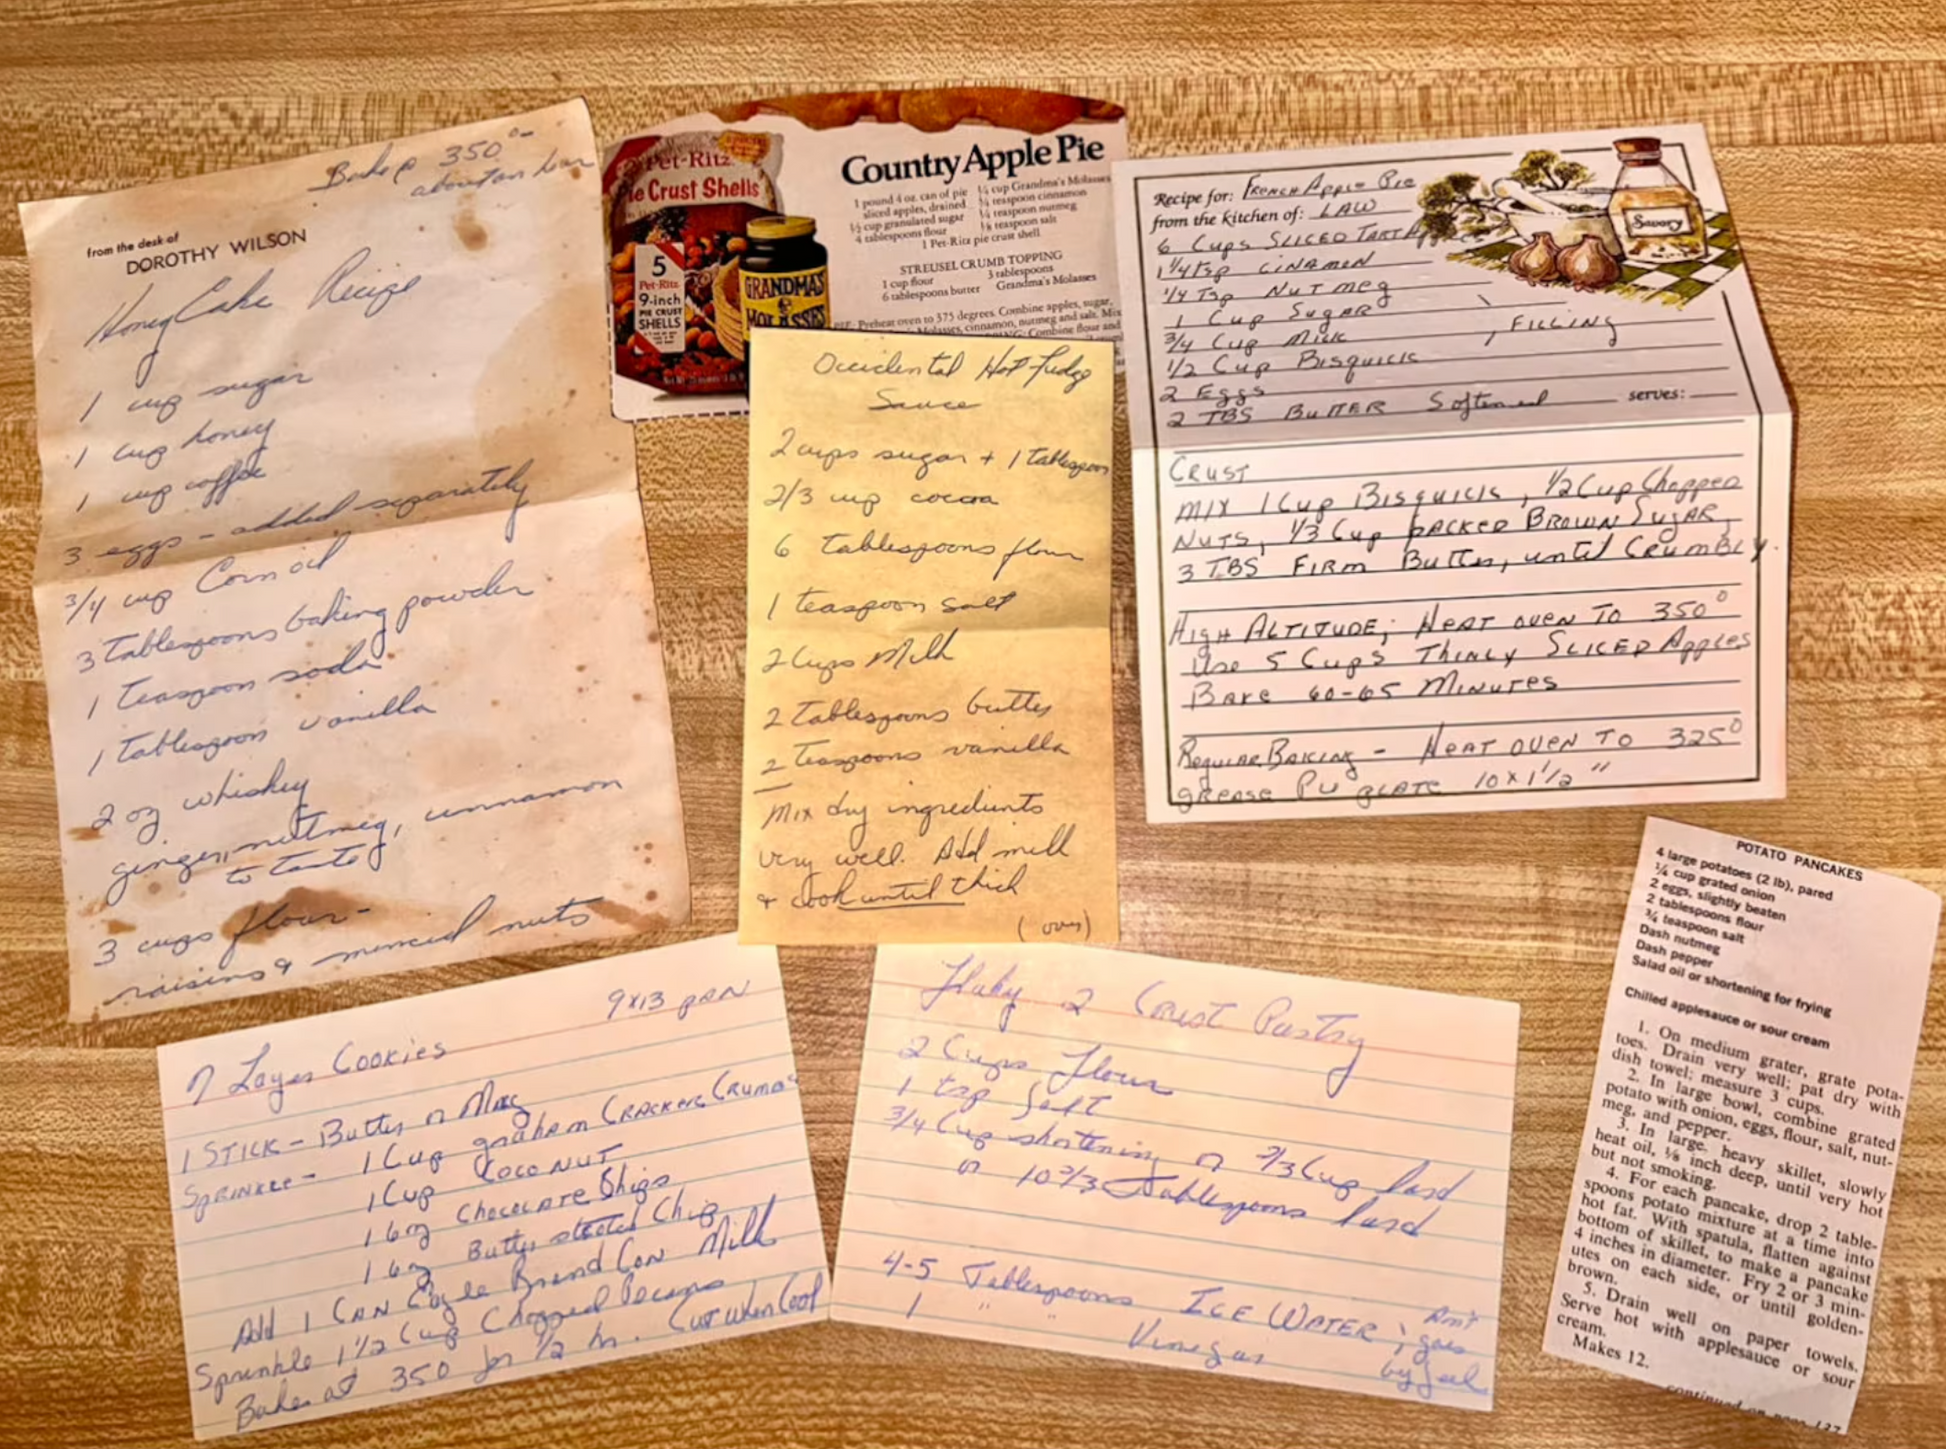 Bake @ 350°-
about an hour
from the desk of
DOROTHY WILSON
Honey Cake Recipe
1 cup sugar
1 cup honey
1 cup coffee
3 eggs - added separately
3/4 cup Corn oil
3 Tablespoons baking powder
1 teaspoon soda
1 tablespoon vanilla
2 oz whiskey
ginger, nutmeg, cinnamon
to taste
3 cups flour-
raisins & minced nuts
Pet-Ritz
Pie Crust Shells
5
Pet-Ritz
9-inch
PIE CRUST
SHELLS
GRANDMA'S
MOLASSES
Country Apple Pie
1 pound 4 oz. can of pie
sliced apples, drained
½ cup granulated sugar
4 tablespoons flour
¼ cup Grandma's Molasses
¼ teaspoon cinnamon
¼ teaspoon nutmeg
⅛ teaspoon salt
1 Pet-Ritz pie crust shell
STREUSEL CRUMB TOPPING
1 cup flour
6 tablespoons butter
3 tablespoons
Grandma's Molasses
PIE: Preheat oven to 375 degrees. Combine apples, sugar,
Molasses, cinnamon, nutmeg and salt. Mix
Combine flour and
Occidental Hot Fudge
Sauce
2 cups sugar + 1 tablespoon
2/3 cup cocoa
6 tablespoons flour
1 teaspoon salt
2 Cups Milk
2 Tablespoons butter
2 Teaspoons vanilla
Mix dry ingredients
very well. Add milk
+ cook until thick
(over)
Recipe for: FRENCH APPLE PIE
from the kitchen of: LAW
Savory
6 Cups SLICED TART Apples
1 1/4 tsp CINAMEN
1/4 Tsp NUTMEg
1 Cup SugAR
3/4 Cup MILK
1/2 Cup BISQUICK
2 EggS
2 TBS BUTTER Softened
, FILLING
serves:
CRUST
MIX 1 Cup BISQUICK, 1/2 Cup Chopped
NUTS, 1/3 Cup PACKED BROWN SugAR,
3 TBS FIRM Butter, until CRUMBLY.
HIGH ALTITUDE; HEAT OVEN TO 350°
Use 5 Cups THINLY SLICED Apples
BAKE 60-65 MINUTES
REgULAR BAKING - HEAT OVEN TO 325°
gREASE PIE PLATE 10 x 1 1/2"
9x13 PAN
7 Layer Cookies
1 STICK - Butter or Marg
SPRINKLE - 1 Cup graham CRACKER CRUMBS
1 Cup COCONUT
1 6oz CHOCOLATE Chips
1 6oz Butter scotch Chips
Add 1 CAN Eagle Brand Con Milk
Sprinkle 1 1/2 Cup Chopped Pecans
Bake at 350 for 1/2 hr. Cut when Cool
Flaky 2 Crust Pastry
2 Cups Flour
1 tsp Salt
3/4 Cup shortening or 2/3 Cup lard
or 10 2/3 Tablespoons lard
4-5 Tablespoons ICE WATER;
1 " Vinegar
goes
by feel
POTATO PANCAKES
4 large potatoes (2 lb), pared
¼ cup grated onion
2 eggs, slightly beaten
2 tablespoons flour
¾ teaspoon salt
Dash nutmeg
Dash pepper
Salad oil or shortening for frying
Chilled applesauce or sour cream
1. On medium grater, grate pota-
toes. Drain very well; pat dry with
dish towel; measure 3 cups.
2. In large bowl, combine grated
potato with onion, eggs, flour, salt, nut-
meg, and pepper.
3. In large, heavy skillet, slowly
heat oil, ⅛ inch deep, until very hot
but not smoking.
4. For each pancake, drop 2 table-
spoons potato mixture at a time into
hot fat. With spatula, flatten against
bottom of skillet, to make a pancake
4 inches in diameter. Fry 2 or 3 min-
utes on each side, or until golden-
brown.
5. Drain well on paper towels.
Serve hot with applesauce or sour
cream.
Makes 12.
continued on page 137